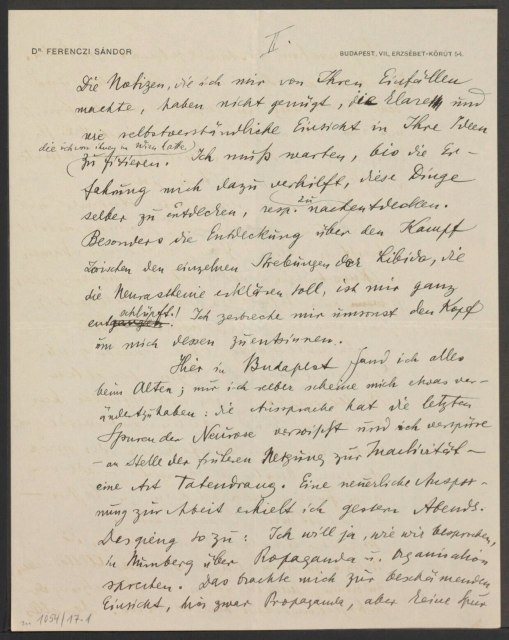 II.
Dr. FERENCZI SÁNDOR
BUDAPEST, VII, ERZSÉBET-KÖRUT 54.
Die Notizen, die ich mir von Ihren Einfällen
machte, haben nicht genügt, die klare und
wie selbstverständliche Einsicht in Ihre Ideen
die ich von in Wien hatte
zu fixieren. Ich muß warten, bis die Er-
fahrung mich dazu verhilft, diese Dinge
selber zu entdecken, resp. zu nachentdecken.
Besonders die Entdeckung über den Kampf
zwischen den einzelnen Strebungen der Libido, die
die Neurasthenie erklären soll, ist mir ganz
entschlüpft! Ich zerbreche mir umsonst den Kopf
um mich dessen zu entsinnen.
Hier in Budapest fand ich alles
beim Alten; nur ich selber scheine mich etwas ver-
ändert zu haben: die Aussprache hat die letzten
Spuren der Neurose verwischt und ich verspüre
– an Stelle der früheren Neigung zur Inactivität –
eine Art Tatendrang. Eine neuerliche Anspor-
nung zur Arbeit erhielt ich gestern Abends.
Das gieng so zu: Ich will ja, wie wir besprochen,
in Nürnberg über Propaganda u. Organisation
sprechen. Das brachte mich zur beschämenden
Einsicht, daß zwar Propaganda, aber keine Spur
1054/17-1